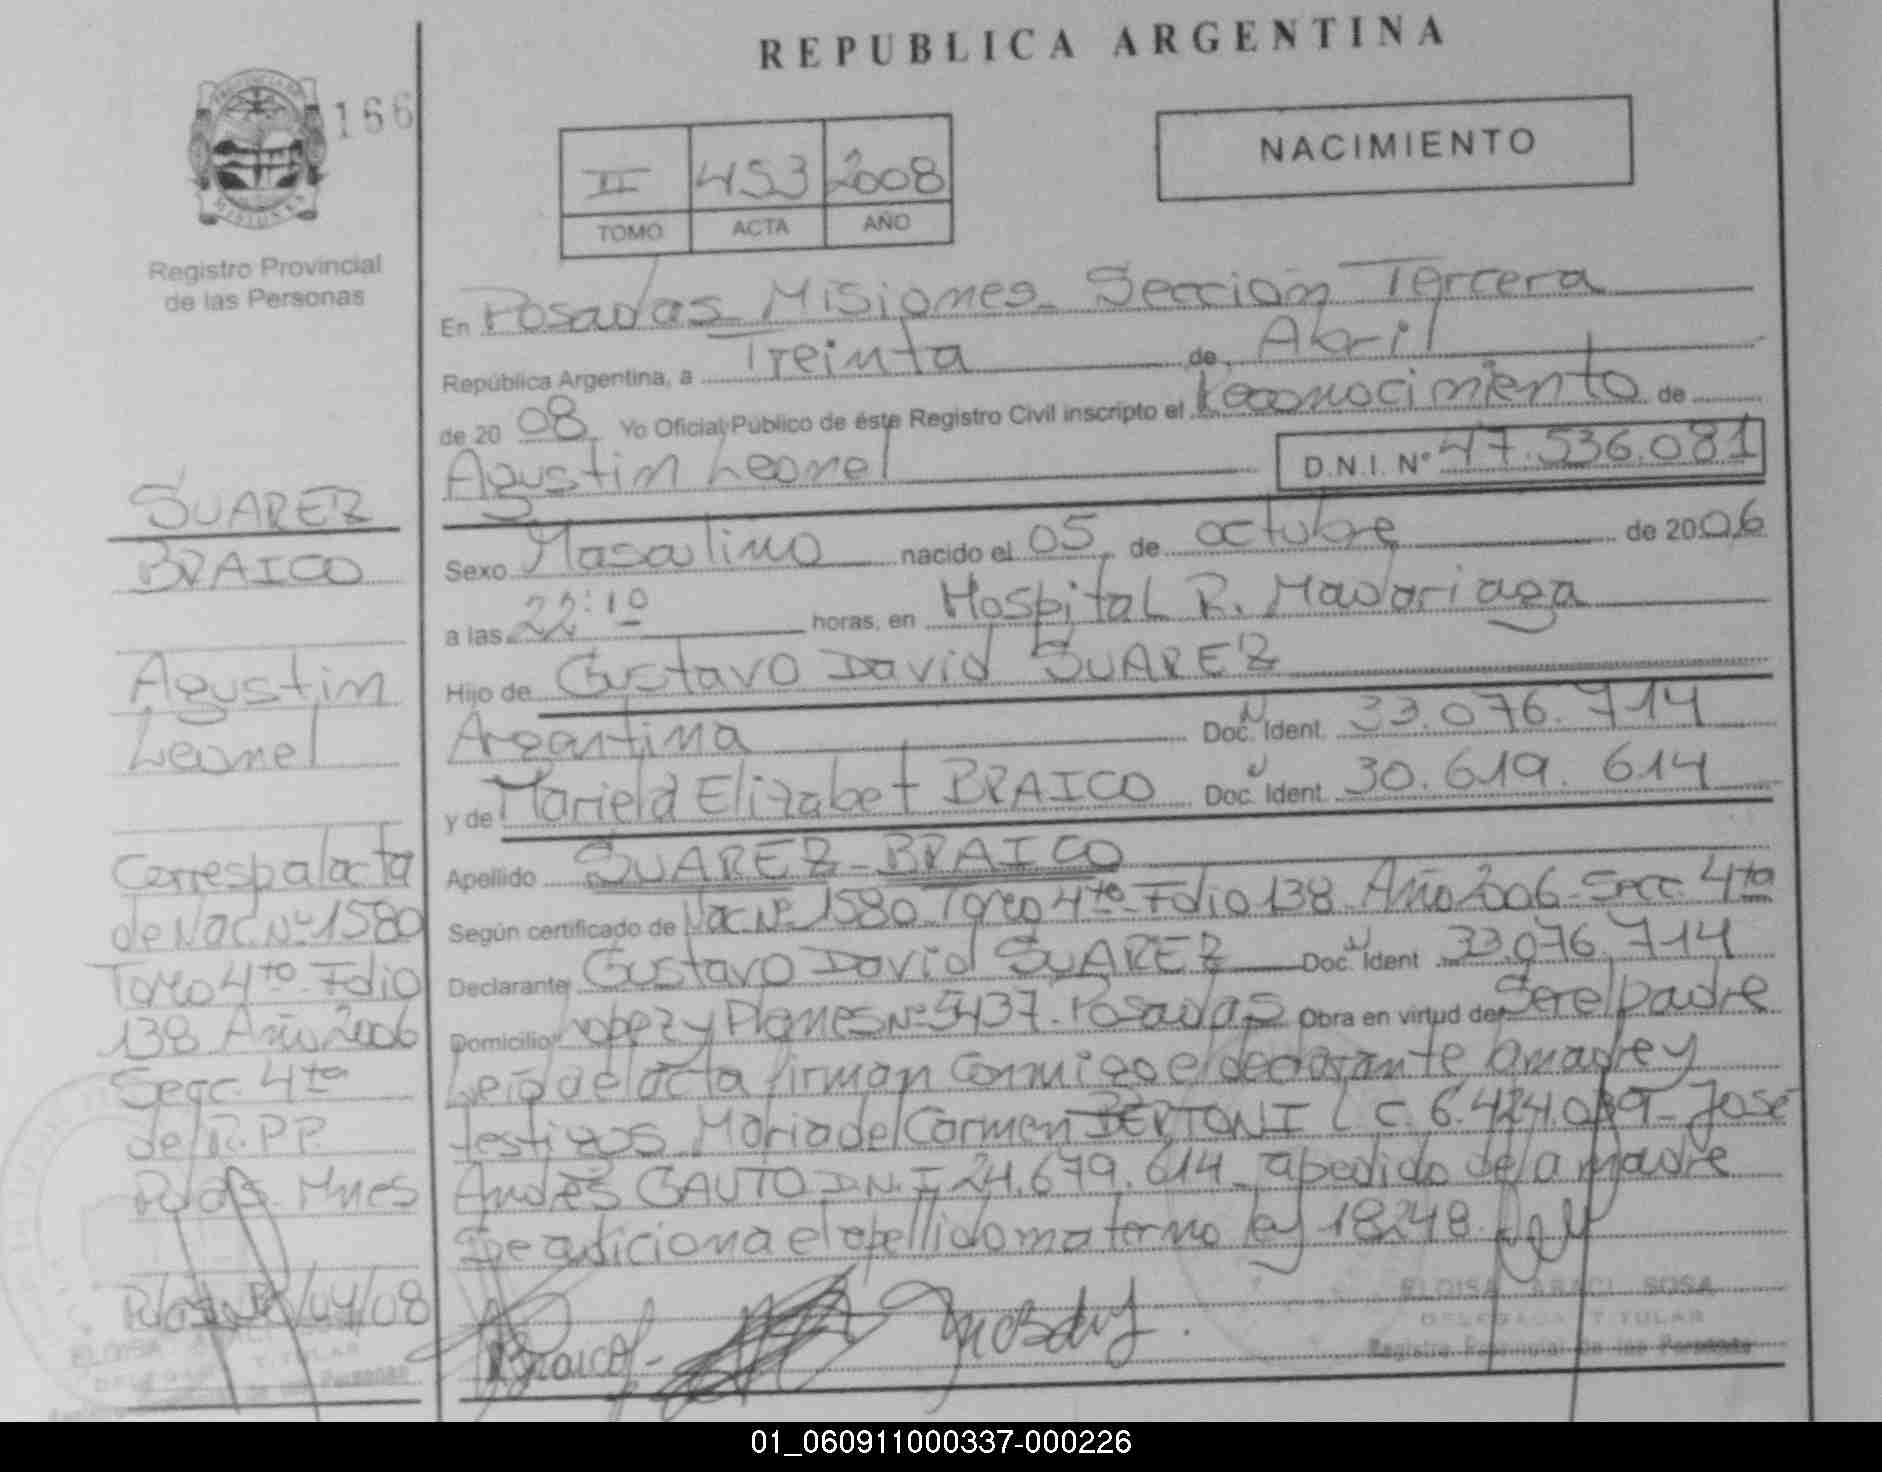 REPUBLICA ARGENTINA
PROVINCIA DE
MISIONES
166
Registro Provincial
de las Personas
II 453 2008
TOMO ACTA AÑO
NACIMIENTO
En Posadas Misiones Sección Tercera
República Argentina, a Treinta de Abril
de 2008 Yo Oficial Público de éste Registro Civil inscripto el Reconocimiento de
Agustin Leonel D.N.I. Nº 47.536.081
Sexo Masculino nacido el 05 de octubre de 2006
a las 22:10 horas, en Hospital R. Madariaga
Hijo de Gustavo David SUAREZ
Argentina Doc. Ident. 33.076.714
y de Mariela Elizabet BRAICO Doc. Ident. 30.619.614
Apellido SUAREZ-BRAICO
Según certificado de Nac Nº 1580 Tomo 4to Folio 138 Año 2006 Secc 4ta
Declarante Gustavo David SUAREZ Doc. Ident. 33.076.714
Domicilio Lopez y Planes Nº 5437. Posadas Obra en virtud de Ser el padre
Leida el acta firman conmigo el declarante la madre y
testigos Maria del Carmen BERTONI L.C. José
Andrés GAUTO D.N.I 24.679.614 a pedido de la madre
Se adiciona el apellido materno ley 18248
Braico
SUAREZ
BRAICO
Agustin
Leonel
Corresp al acta
de Nac. Nº 1580
Tomo 4to Folio
138 Año 2006
Secc. 4ta
del R.P.P.
Pdas. Mnes
/04/08
ELOISA ARACI SOSA
DELEGADA TITULAR
Registro Provincial de las Personas
ELOISA
TITULAR
de las Personas
01_060911000337-000226